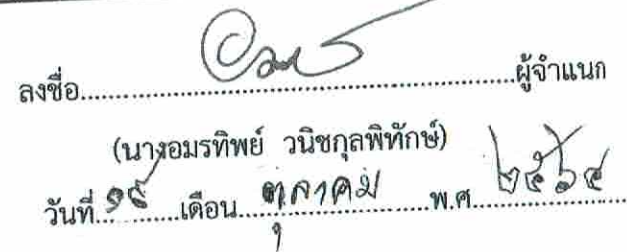 ลงชื่อ..........ผู้จำแนก
(นางอมรทิพย์ วนิชกุลพิทักษ์)
วันที่..........เดือน ตุลาคม พ.ศ. ๒๕๖๔